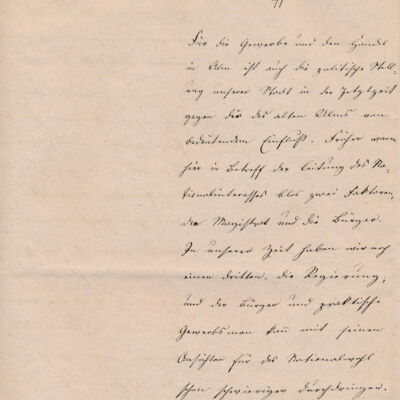 71
Für die Gewerbe und den Handel
in Ulm ist auch die politische Stell-
ung unserer Stadt in der Jetztzeit
gegen der des alten Ulms von
bedeutendem Einfluß. Früher waren
hier in Betreff der Leitung des Na-
tionalinteresses blos zwei Faktoren,
der Magistrat und die Bürger.
In unserer Zeit haben wir noch
einen dritten, die Regierung,
und der Bürger und praktische
Gewerbsman kann mit seinen
Ansichten für das Nationalwohl
schon schwieriger durchdringen.